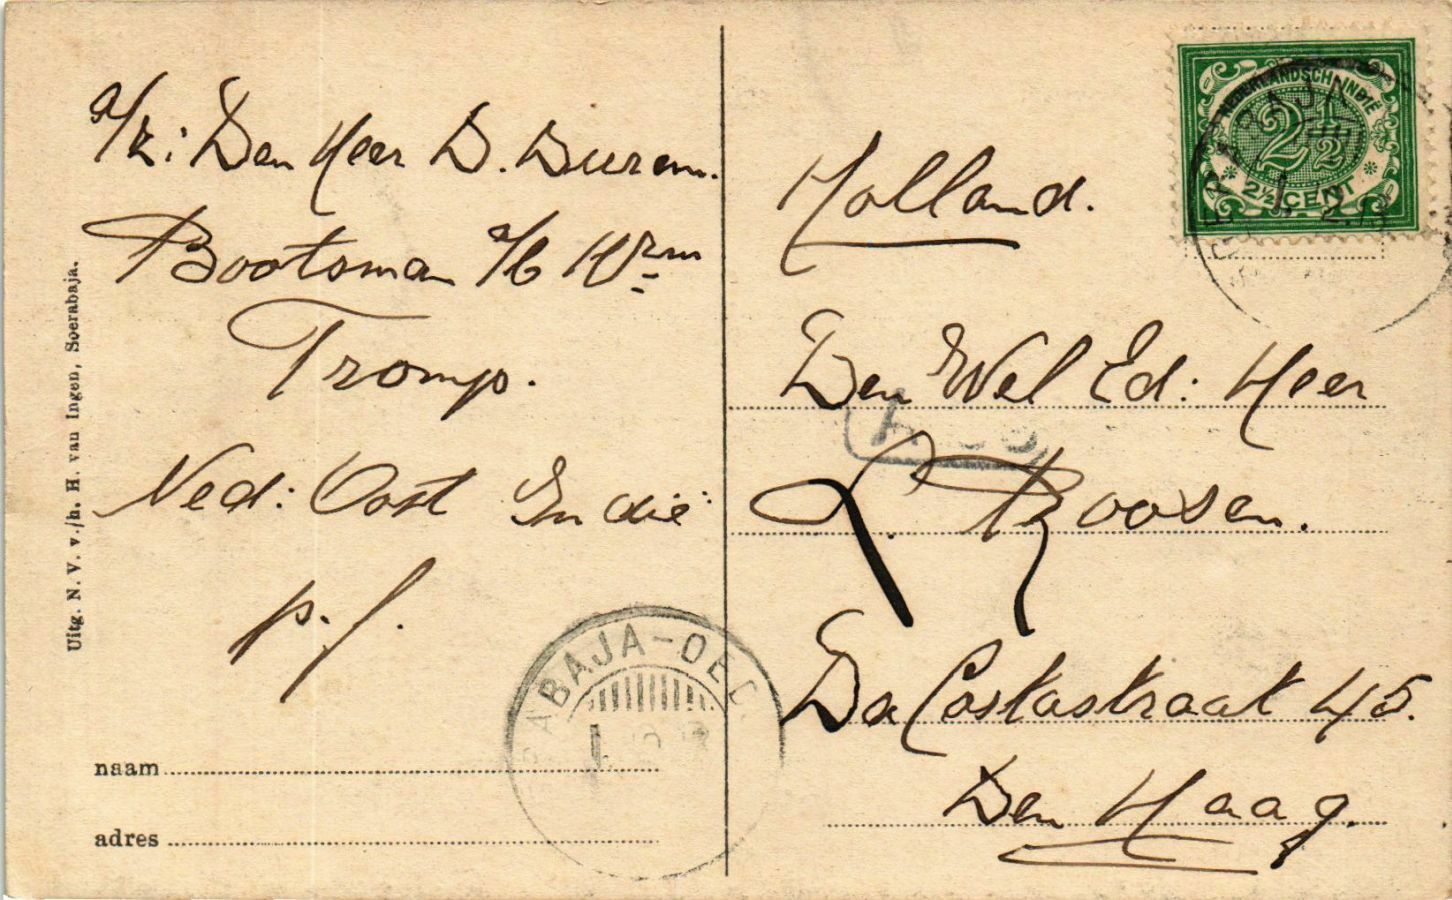 a/z: Den Heer D. Buren.
Bootsman a/b Hrm
Tromp.
Ned: Oost Indië
p. f.
Uitg. N. V. v./h. H. van Ingen, Soerabaja.
naam
adres
BAJA-OED
NEDERLANDSCH-INDIË
2½
2½ CENT
Holland.
Den Wel Ed: Heer
L. Roosen.
Da Costastraat 45.
Den Haag.